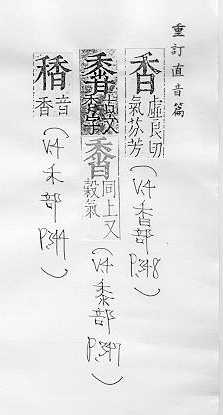 重訂直音篇
香 虛良切 氣芬芳
(V.4 香部 P.348)
同上又 穀氣
(V.4 黍部 P.347)
音 香
(V.4 禾部 P.344)